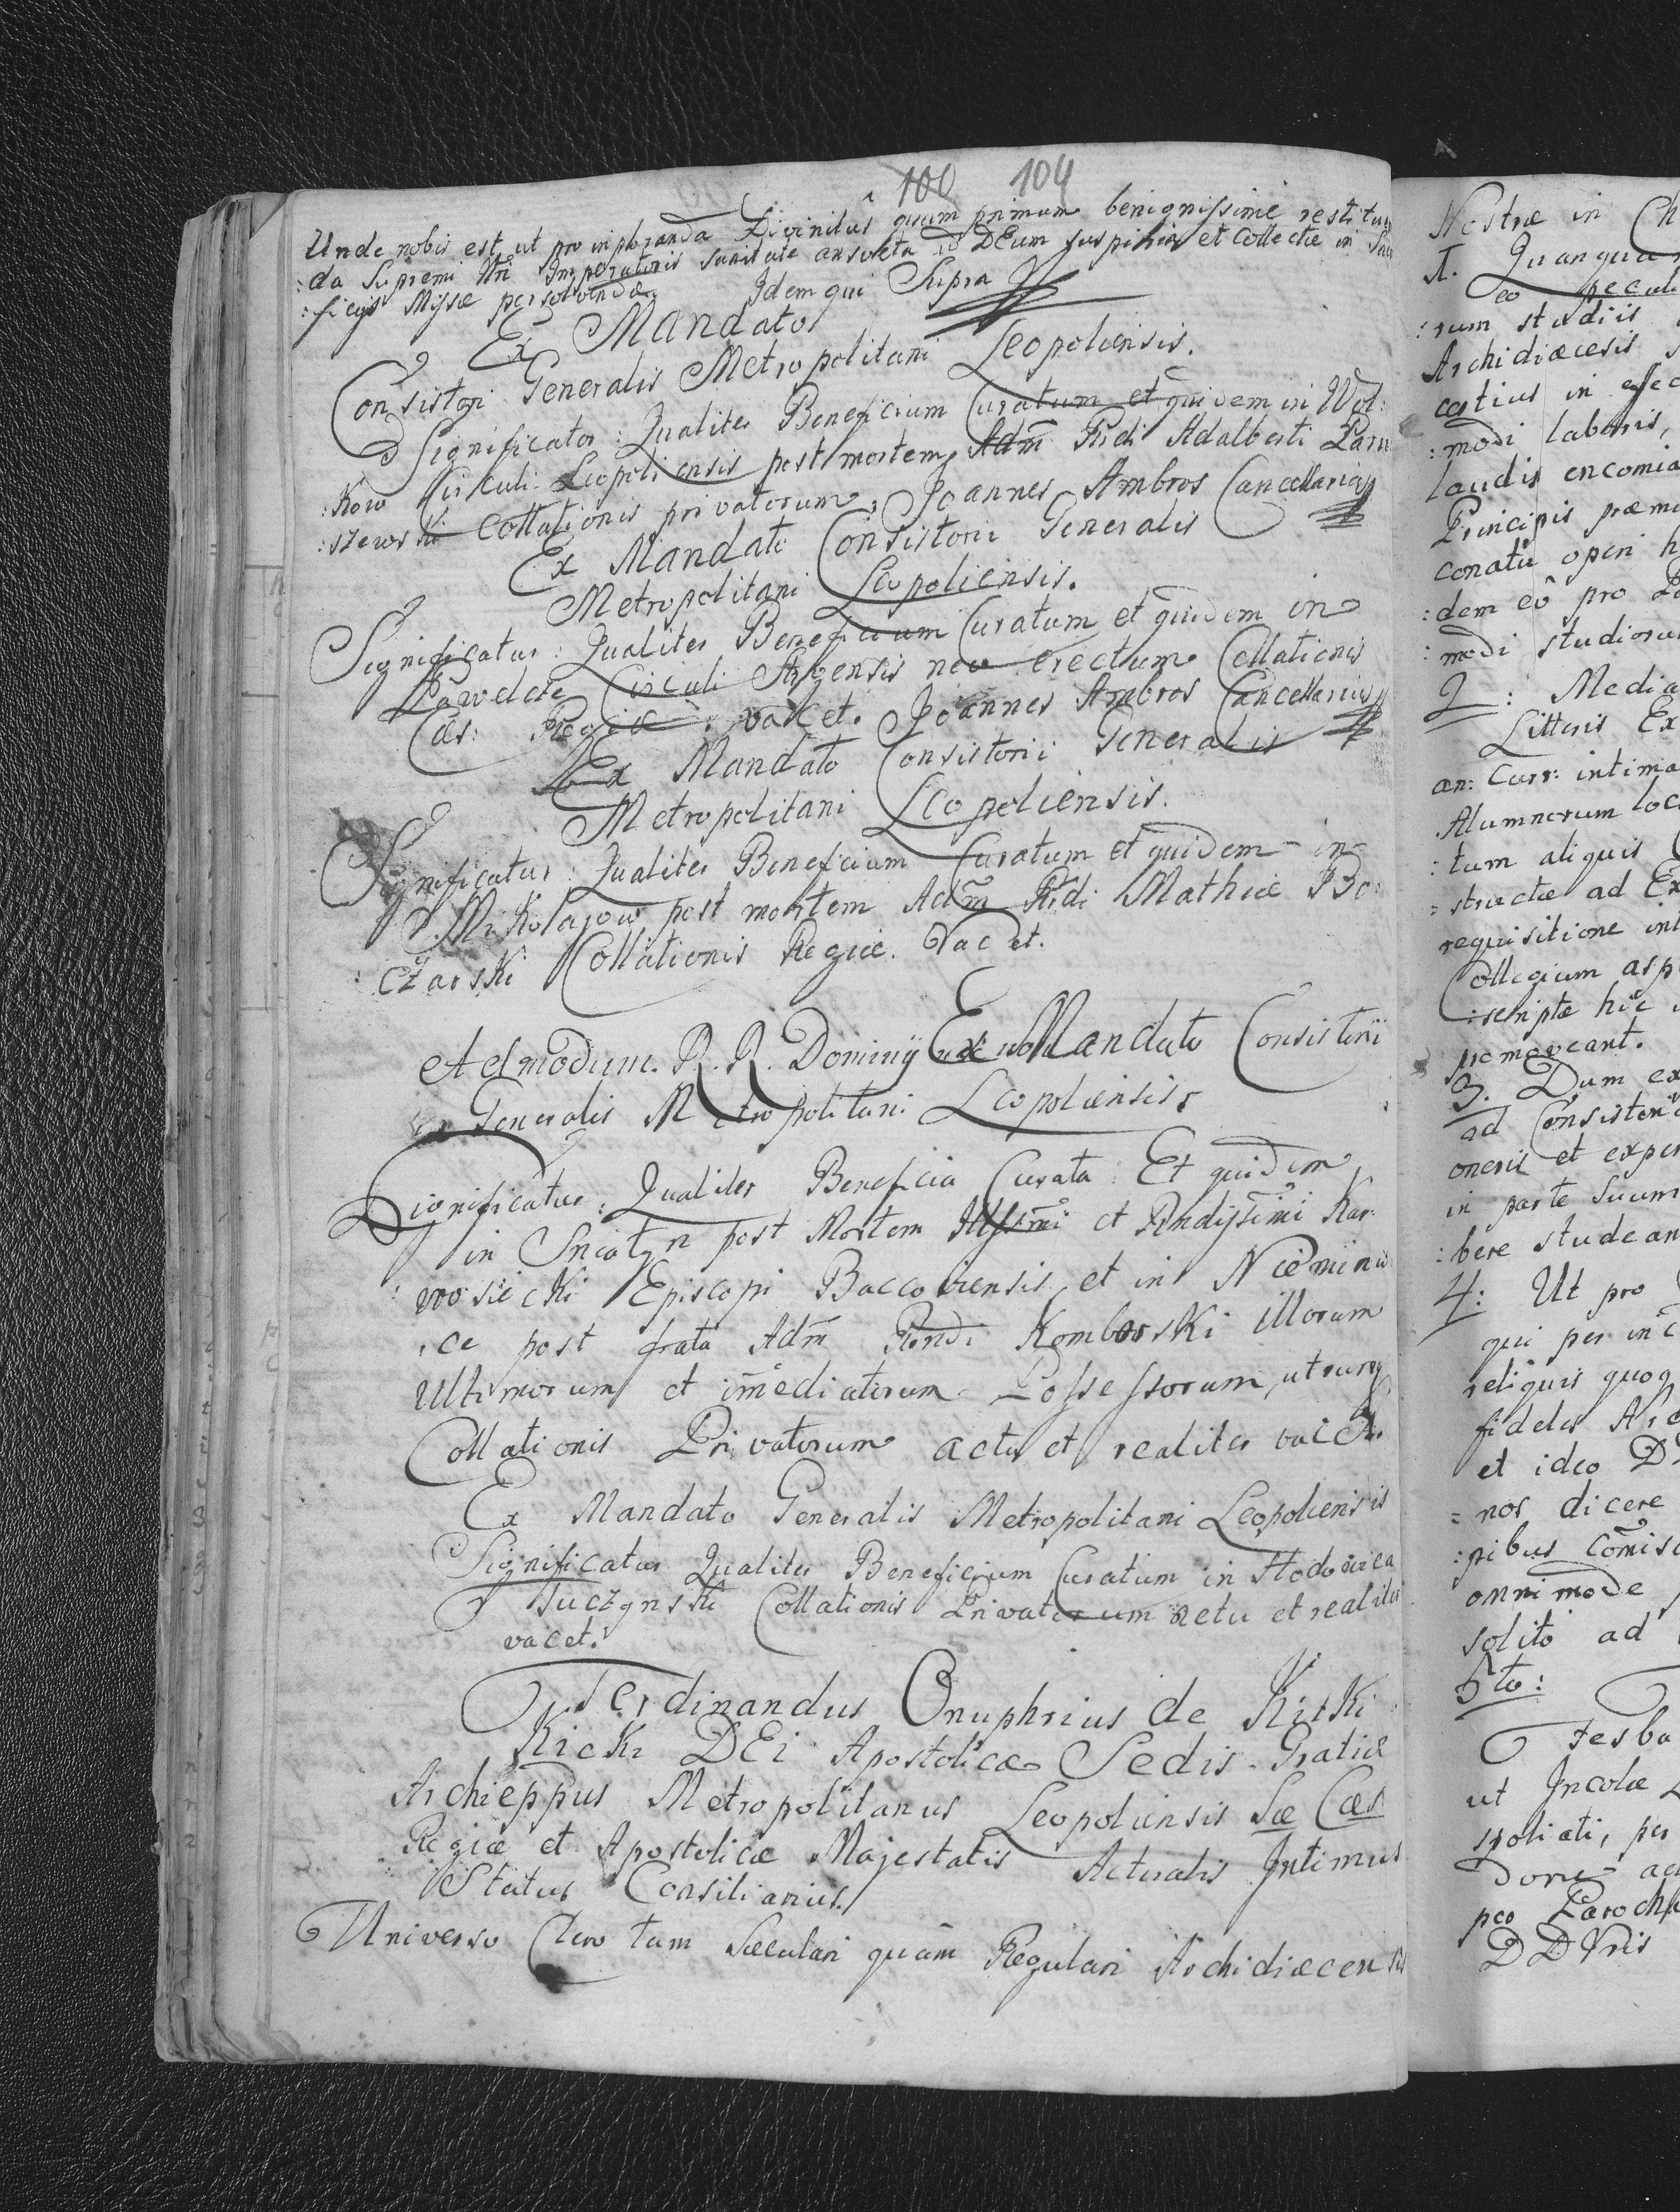 100 104
Unde nobis est ut pro imploranda Divinitus quam primum benignissime restituen
:da Supremi Nri Imperatoris sanitate ansueta ad DEum suspiria et Collectæ in Sac
:ficiis Missæ persolvendæ. Idem qui Supra
Ex Mandato
Consistorii Generalis Metropolitani Leopoliensis.
Significatur: Qualiter Beneficium Curatum et quidem in Wol:
:kow Circuli Leopoliensis post mortem Adm̃ Rndi Adalberti Paru
:szewski Collationis privatorum, Joannes Ambros Cancellarius
Ex Mandato Consistorii Generalis
Metropolitani Leopoliensis.
Significatur: Qualiter Beneficium Curatum et quidem in
Pawelcze Circuli Stryensis neo erectum Collationis
Cæs: Regiæ vacet. Joannes Ambros Cancellarius
Ex Mandato Consistorii Generalis
Metropolitani Leopoliensis.
Significatur: Qualiter Beneficium Curatum et quidem in
Mikolajow post mortem Adm̃ Rdi Mathiæ Bo:
:czarski Collationis Regiæ. Vacet.
Admodum. R.R. Dominij Ex Mandato Consistorii
Generalis Metropolitani Leopoliensis
Significatur: Qualiter Beneficia Curata: Et quidem
in Sniatyn post Mortem Illssimi et Rndissimi Kar:
:wosiecki Episcopi Baccoviensis, et in Niemirow
:ce post frata Adm̃ Rondi Komborski illorum
Ultimorum et im̃ediatorum Possessorum, utrumq
Collationis Privatorum actu et realiter vacet.
Ex Mandato Generalis Metropolitani Leopoliensis
Significatur Qualiter Beneficium Curatum in Hodowica
Tuczynski Collationis Privatorum actu et realiter
vacet.
Ferdinandus Onuphrius de Kitki
Kicki DEi Apostolicæ Sedis Gratia
Archieppus Metropolitanus Leopoliensis Sæ Cæs
Regiæ et Apostolicæ Majestatis Actualis Intimus
Status Consiliarius.
Universo Clero tam Sæculari quam̃ Regulari Archidiæcensis
Nostræ in Ch
1. Quanqua
eo pecul
:rum studiis
Archidiæcesis
certius in effec
:modi laboris,
laudis encomia
Principis præmi
conatu operi h
:dem eo pro
:modi studioru
2: Media
Litteris Ex
an: Curr: intima
Alumnorum loc
:tum aliquis
=structæ ad Ex
requisitione int
Collegium asp
:scriptæ hic
promoveant.
3. Dum ex
ad Consistori
oneris et exper
in parte Suum
:bere studean
4: Ut pro
qui per in
reliquis quoq
fideles Arc
et ideo D
=nos dicere
:pibus Com̃is
omnimode
solito ad
5to:
Fesba
ut Incolæ
spoliati, per
Donec
per Paroch
DD Vris